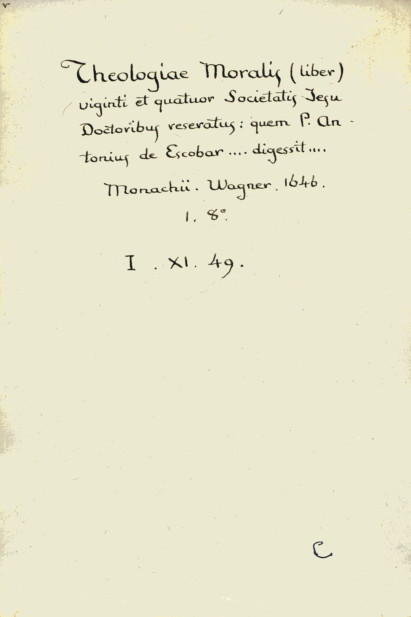 Theologiae Moralis (liber)
viginti et quatuor Societatis Jesu
Doctoribus reseratus: quem P. An-
tonius de Escobar .... digessit ....
Monachii. Wagner. 1646.
1. 8º.
I . XI. 49.
C